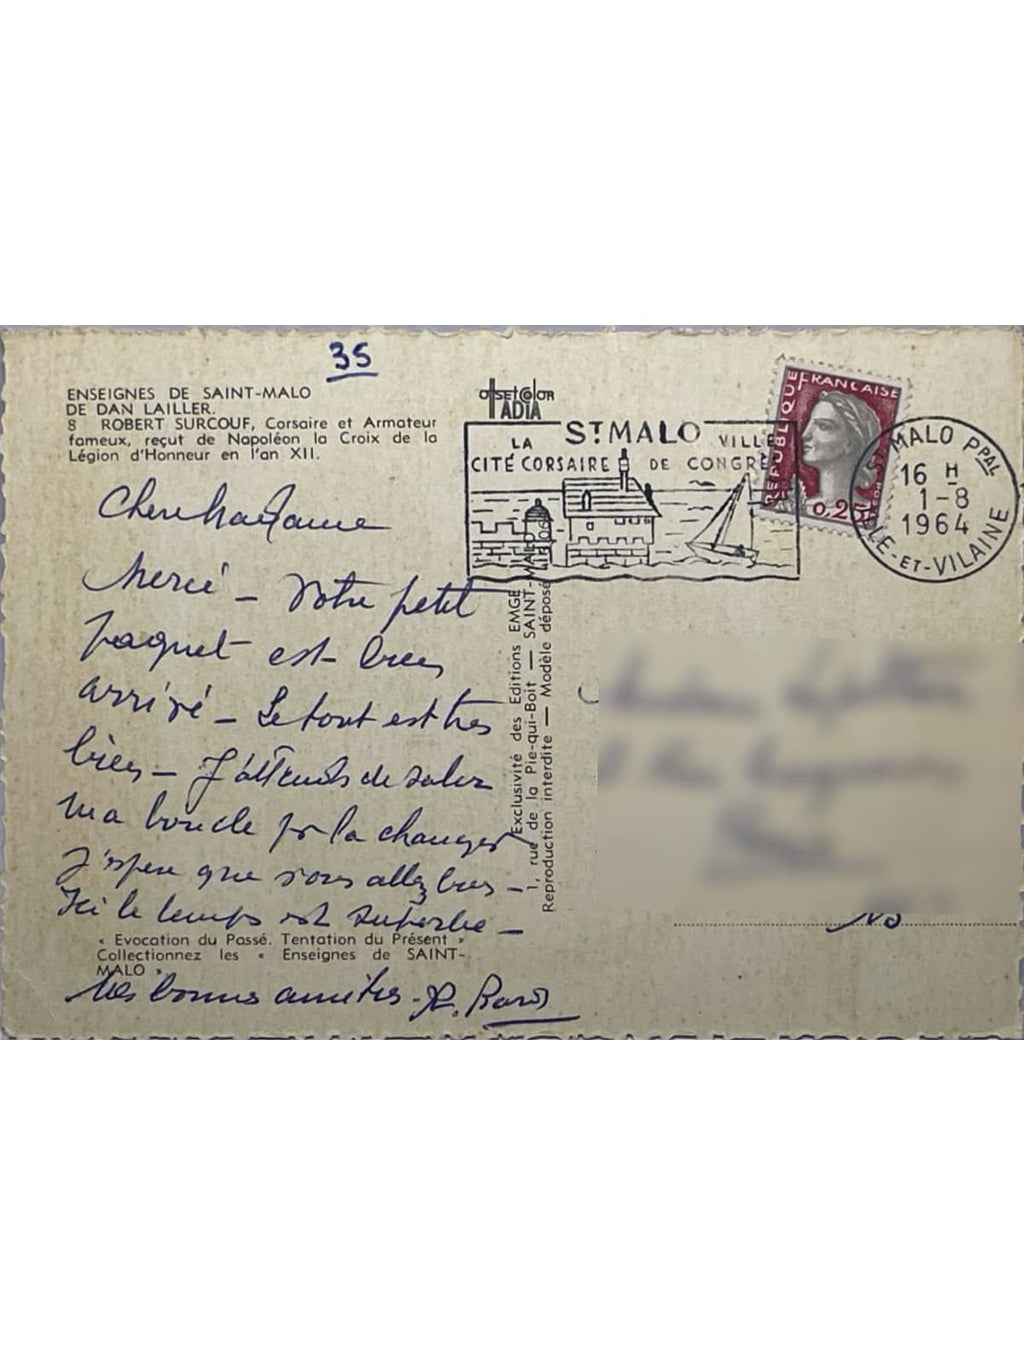 35
ENSEIGNES DE SAINT-MALO
DE DAN LAILLER.
8 ROBERT SURCOUF, Corsaire et Armateur
fameux, reçut de Napoléon la Croix de la
Légion d'Honneur en l'an XII.
Chere Madame
Merci – Votre petit
paquet est bien
arrivé – Le tout est tres
bien – J'attends de
ma boucle pr la changer
J'espere que vous allez bien –
Ici le temps est superbe –
« Evocation du Passé. Tentation du Présent »
Collectionnez les « Enseignes de SAINT-
MALO »
Mes bonnes amitiés – R.
OffsetColor
IADIA
LA ST MALO VILLE
CITÉ CORSAIRE DE CONGRÈ
REPUBLIQUE FRANCAISE
0,25
ST MALO PPAL
16 H
1-8
1964
ILLE-ET-VILAINE
Exclusivité des Editions EMGE
1, rue de la Pie-qui-Boit — SAINT-MALO
Reproduction interdite — Modèle déposé